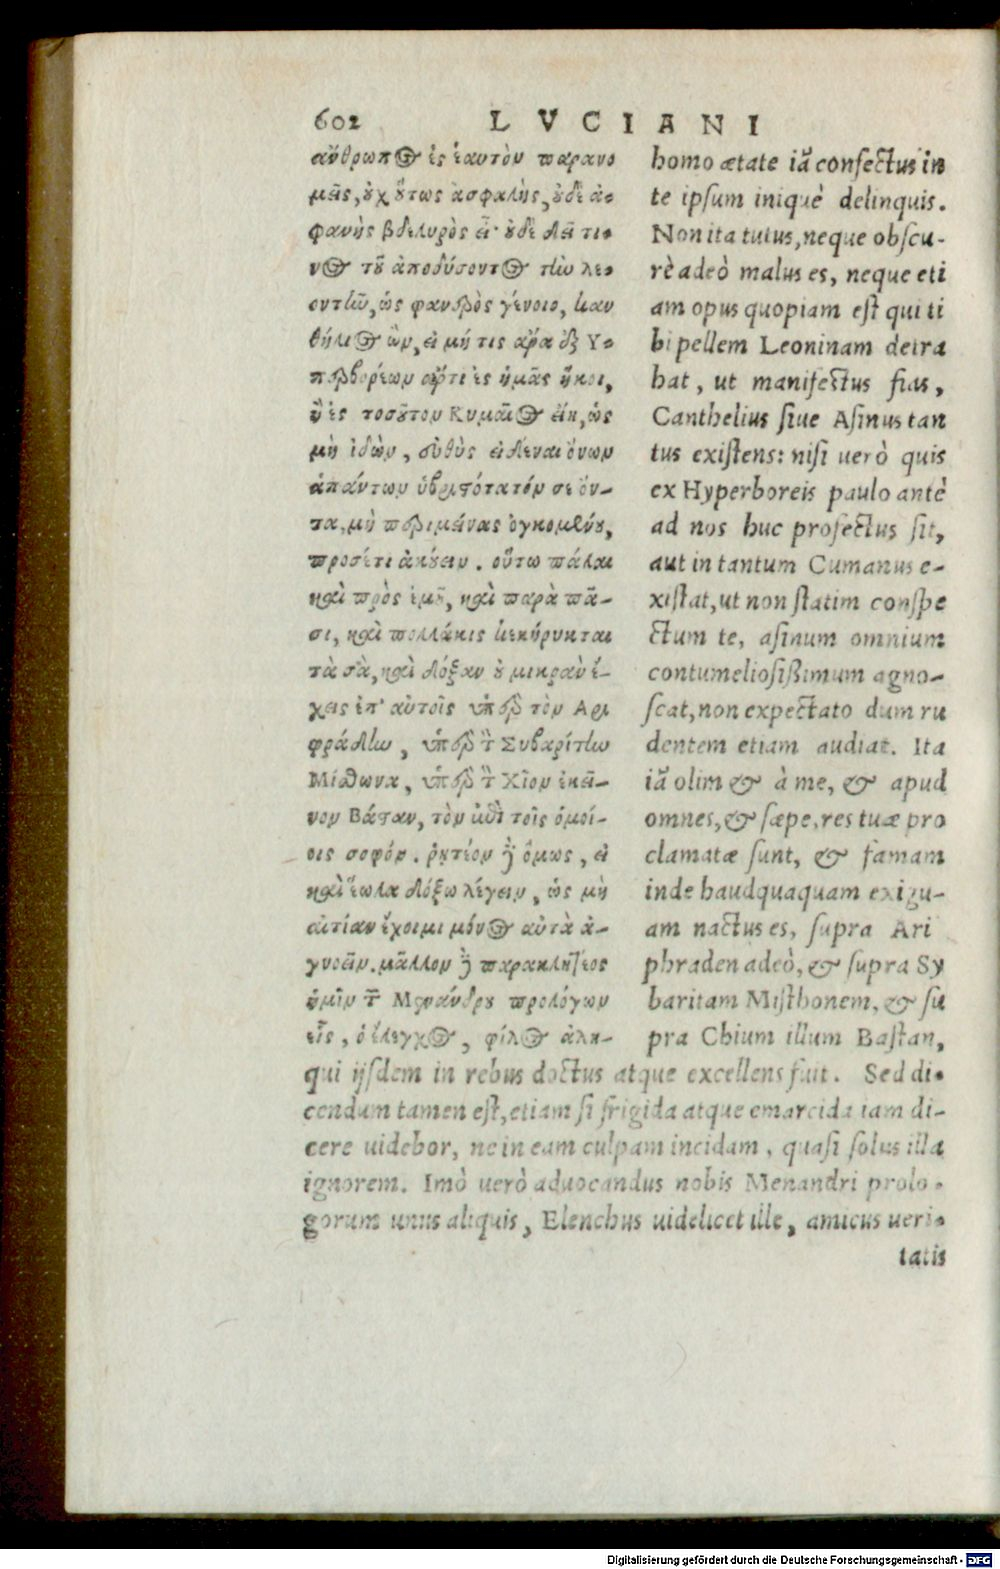 602 LVCIANI
ἄνθρωπος ἐς ἑαυτὸν παρανο
μεῖς, οὐχ οὕτως ἀσφαλὴς, οὐδὲ ἀ-
φανὴς βδελυρὸς εἶ· οὐδὲ δεῖ τι-
νος τοῦ ἀποδύσοντος τὴν λε-
οντῆν, ὡς φανερὸς γένοιο, καν
θήλιος ὢν, εἰ μή τις ἄρα ἐξ Υ-
περβορέων ἄρτι ἐς ἡμᾶς ἥκοι,
ἢ ἐς τοσοῦτον Κυμαῖος εἴη, ὡς
μὴ ἰδὼν, εὐθὺς εἰδέναι ὄνων
ἁπάντων ὑβριστότατόν σε ὄν-
τα, μὴ περιμείνας ὀγκωμένου,
προσέτι ἀκούειν. οὕτω πάλαι
καὶ πρὸς ἐμοῦ, καὶ παρὰ πᾶ-
σι, καὶ πολλάκις κεκήρυκται
τὰ σὰ, καὶ δόξαν οὐ μικρὰν ἔ-
χεις ἐπ' αὐτοῖς ὑπὲρ τὸν Αρι
φράδην, ὑπὲρ τὸν Συβαρίτην
Μίσθωνα, ὑπὲρ τὸν Χῖον ἐκεῖ-
νον Βάσταν, τὸν ἐπὶ τοῖς ὁμοί-
οις σοφόν. ῥητέον δὲ ὅμως, εἰ
καὶ ἕωλα δόξω λέγειν, ὡς μὴ
αἰτίαν ἔχοιμι μόνος αὐτὰ ἀ-
γνοεῖν. μᾶλλον δὲ παρακλητέος
ἡμῖν τῶν Μενάνδρου προλόγων
εἷς, ὁ ἔλεγχος, φίλος ἀλη-
homo ætate iã confectus in
te ipsum iniquè delinquis.
Non ita tutus, neque obscu-
rè adeò malus es, neque eti
am opus quopiam est qui ti
bi pellem Leoninam detra
hat, ut manifectus fias,
Canthelius siue Asinus tan
tus existens: nisi uerò quis
ex Hyperboreis paulo antè
ad nos huc profectus sit,
aut in tantum Cumanus e-
xistat, ut non statim conspe
ctum te, asinum omnium
contumeliosißimum agno-
scat, non expectato dum ru
dentem etiam audiat. Ita
iã olim & à me, & apud
omnes, & sæpe, res tuæ pro
clamatæ sunt, & famam
inde haudquaquam exigu-
am nactus es, supra Ari
phraden adeò, & supra Sy
baritam Misthonem, & su
pra Chium illum Bastan,
qui ijsdem in rebus doctus atque excellens fuit. Sed di-
cendum tamen est, etiam si frigida atque emarcida iam di-
cere uidebor, ne in eam culpam incidam, quasi solus illa
ignorem. Imò uerò aduocandus nobis Menandri prolo-
gorum unus aliquis, Elenchus uidelicet ille, amicus ueri-
tatis
Digitalisierung gefördert durch die Deutsche Forschungsgemeinschaft - DFG